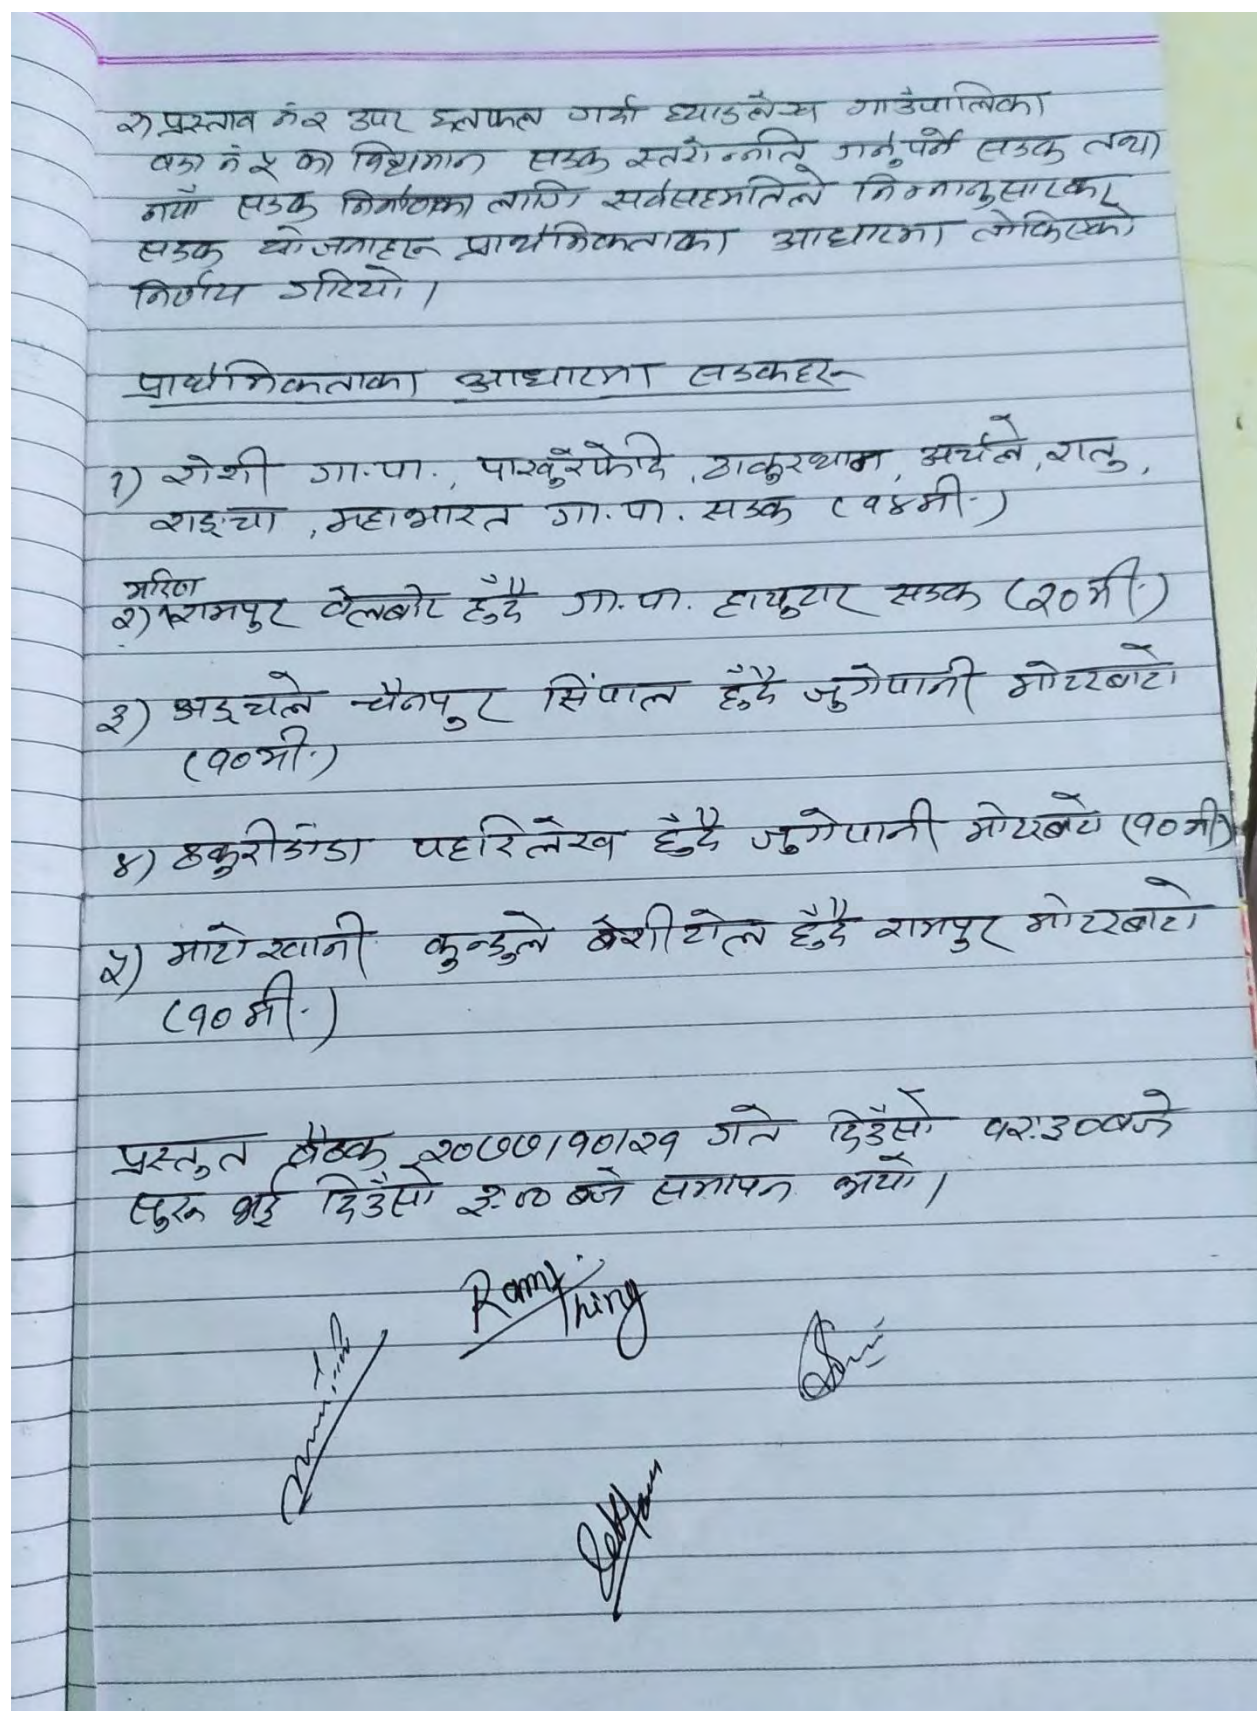 २) प्रस्ताव नं २ उपर छलफल गर्दा घ्याङलेख गाउँपालिका
वडा नं ५ का विद्यमान सडक स्तरोन्नति गर्नुपर्ने सडक तथा
नयाँ सडक निर्माणका लागि सर्वसहमतिले निम्नानुसारका
सडक योजनाहरू प्राथमिकताका आधारमा तोकिएको
निर्णय गरियो ।
प्राथमिकताका आधारमा सडकहरू
१) रोशी गा.पा., पाखुरेफेदि, ठाकुरथाम, अर्चले, रातु,
राइचा, महाभारत गा.पा. सडक (१४मी.)
मरिण
२) रामपुर वेलबोट हुँदै गा.पा. हायुटार सडक (२०मी.)
३) अइचले चैनपुर सिंपाल हुँदै जुगेपानी मोटरबाटो
(१०मी.)
४) ठकुरीडाँडा पहरिलेख हुँदै जुगेपानी मोटरबाटो (१०मी)
५) माटोखानी कुन्डुले बेशीटोल हुँदै रामपुर मोटरबाटो
(१०मी.)
प्रस्तुत बैठक २०७७/१०/२१ गते दिउँसो १२:३०बजे
सुरू भई दिउँसो ३:०० बजे समापन भयो ।
Ram
Thing